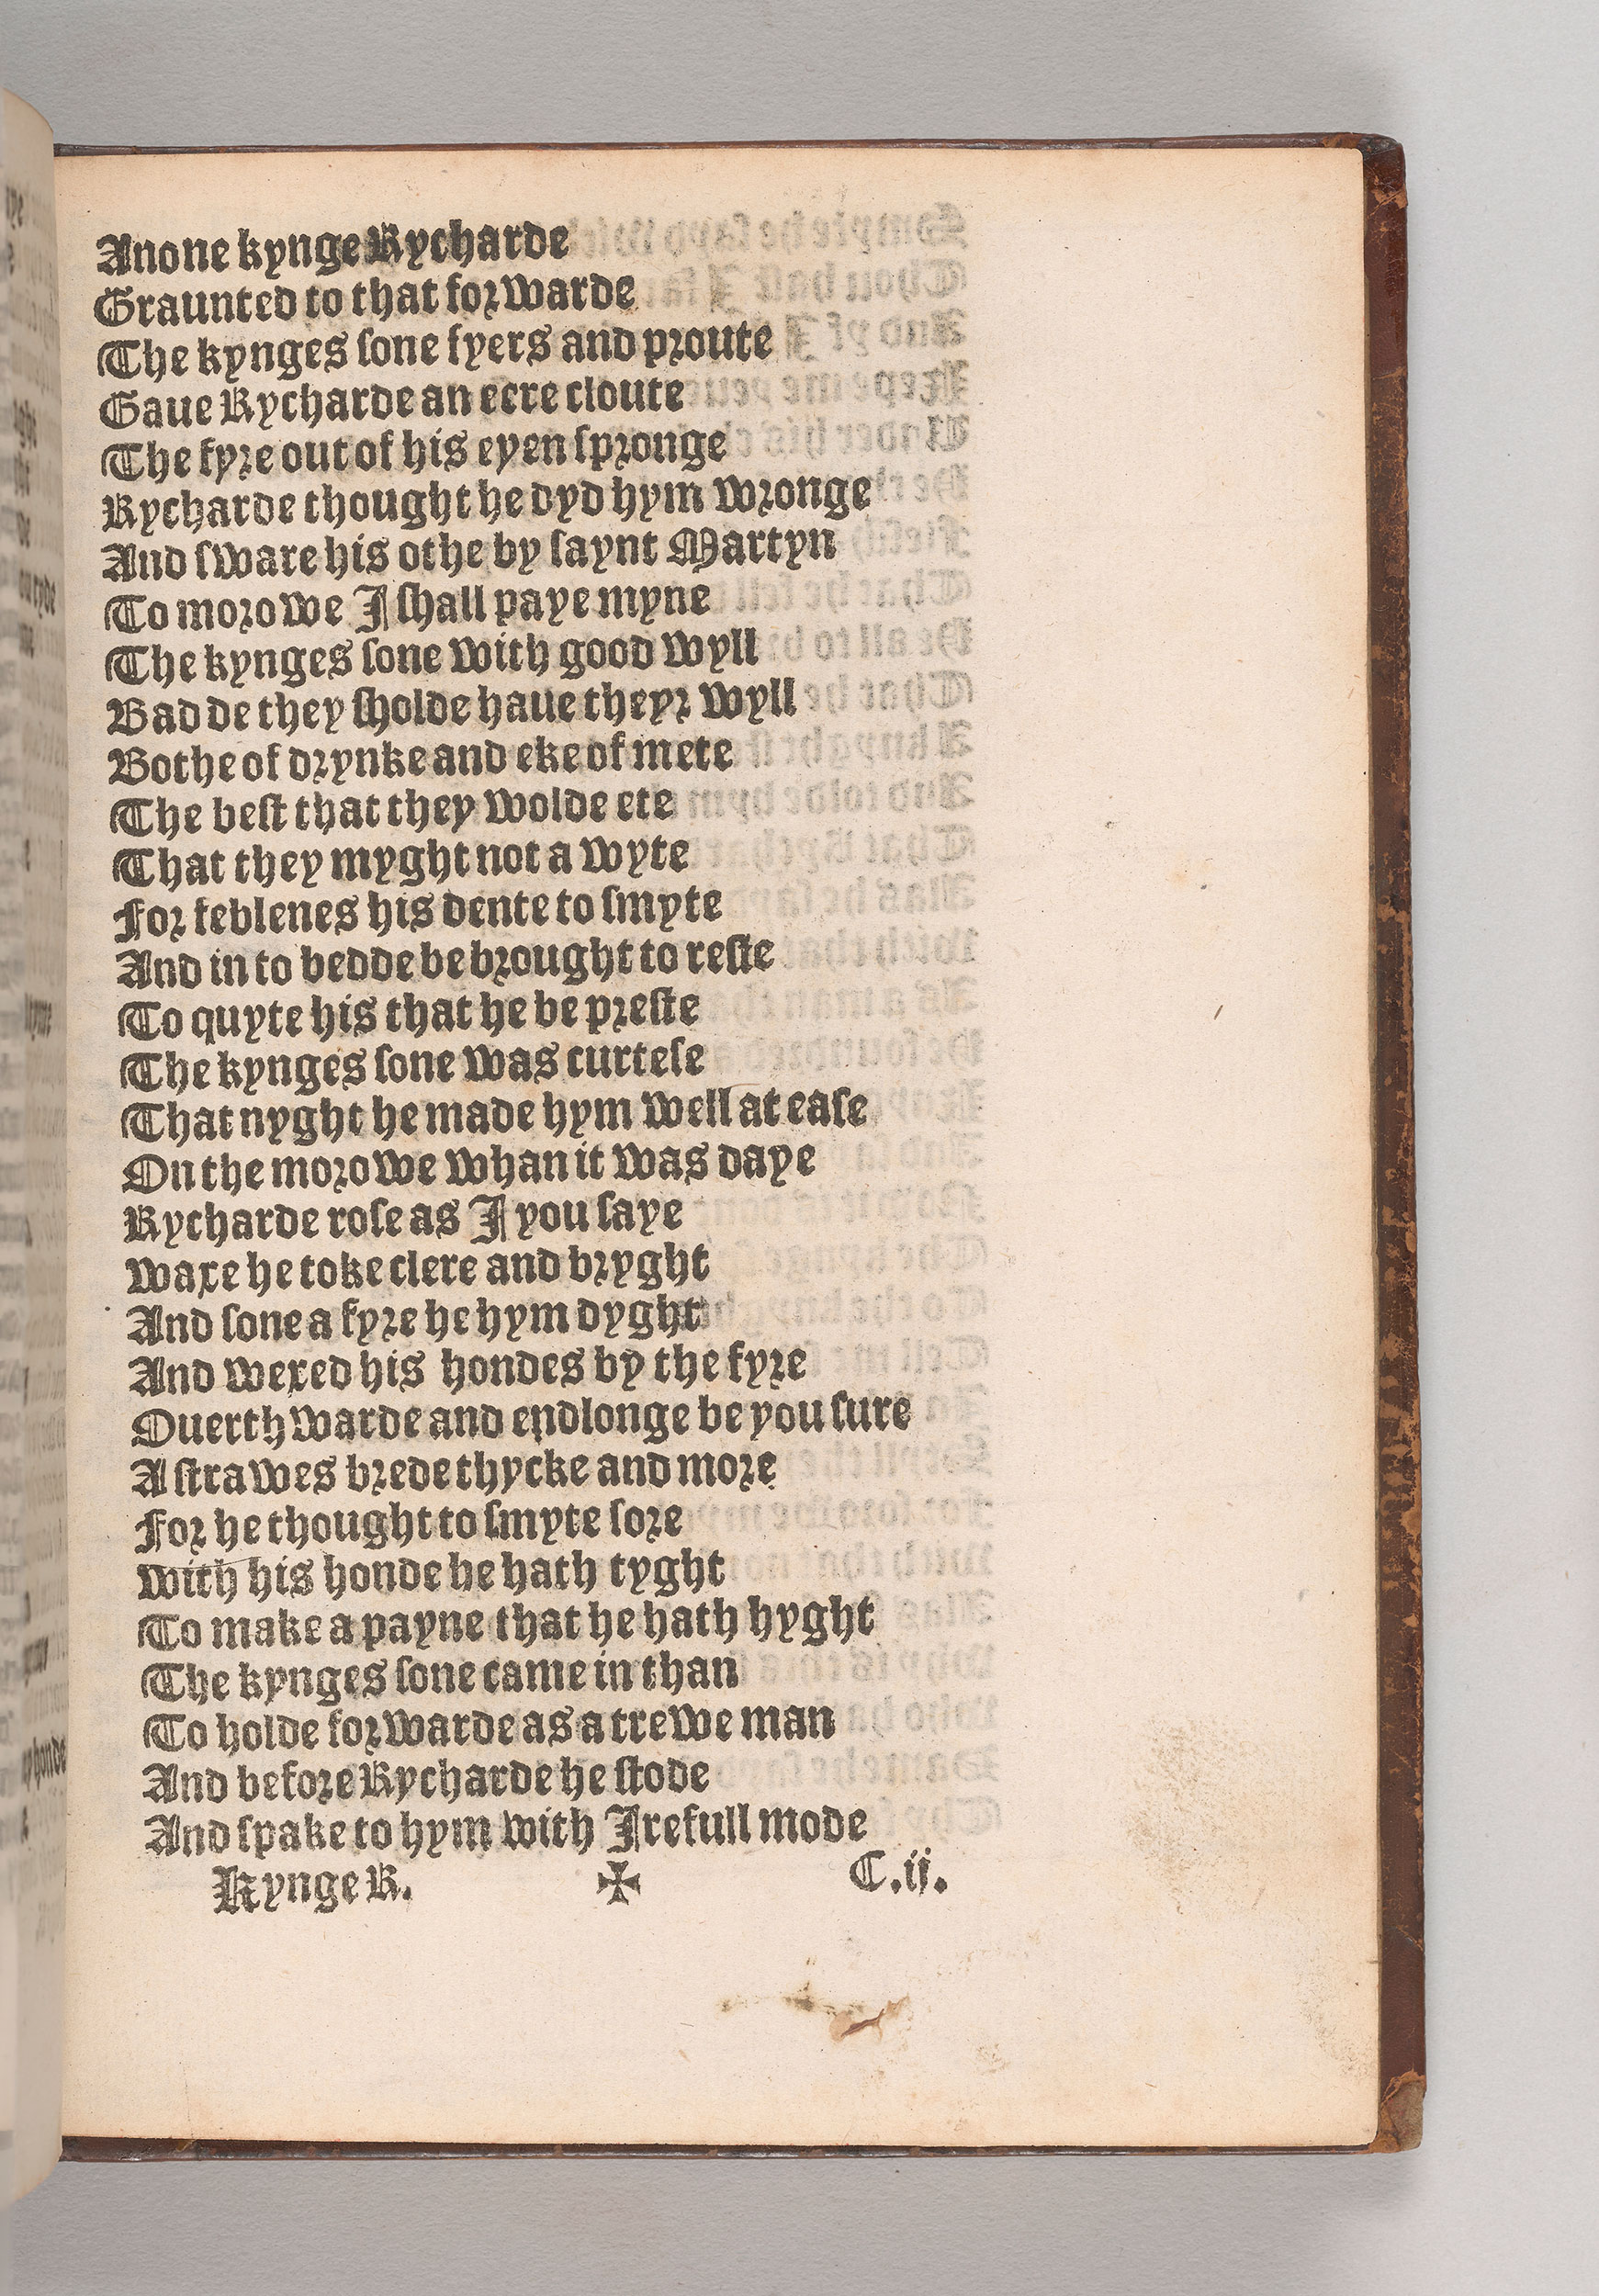 Anone kynge Rycharde
Graunted to that forwarde
The kynges sone fyers and proute
Gaue Rycharde an eere cloute
The fyre out of his eyen spronge
Rycharde thought he dyd hym wronge
And sware his othe by saynt Martyn
To morowe I shall paye myne
The kynges sone with good wyll
Badde they sholde haue theyr wyll
Bothe of drynke and eke of mete
The best that they wolde ete
That they myght not a wyte
For feblenes his dente to smyte
And in to bedde be brought to reste
To quyte his that he be preste
The kynges sone was curtese
That nyght he made hym well at ease
On the morowe whan it was daye
Rycharde rose as I you saye
Waxe he toke clere and bryght
And sone a fyre he hym dyght
And wexed his hondes by the fyre
Ouerthwarde and endlonge be you sure
A strawes brede thycke and more
For he thought to smyte sore
With his honde he hath tyght
To make a payne that he hath hyght
The kynges sone came in than
To holde forwarde as a trewe man
And before Rycharde he stode
And spake to hym with Irefull mode
Kynge R. ✠ C.ij.